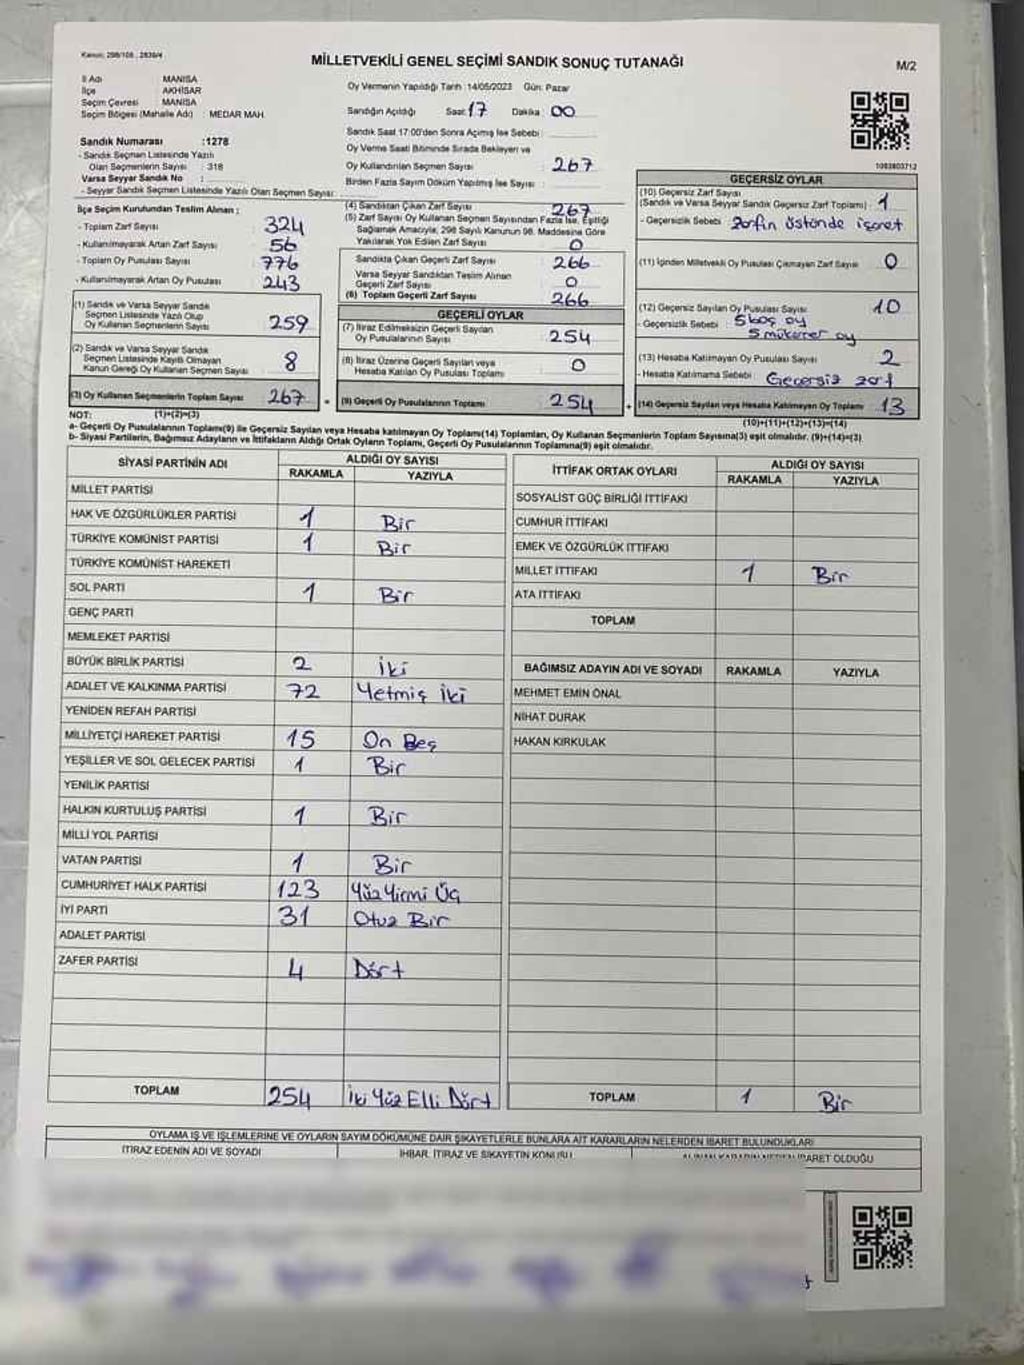 Kanun: 298/105 , 2839/4
MİLLETVEKİLİ GENEL SEÇİMİ SANDIK SONUÇ TUTANAĞI
M/2
İl Adı : MANİSA
İlçe : AKHİSAR
Seçim Çevresi : MANİSA
Seçim Bölgesi (Mahalle Adı) : MEDAR MAH.
Oy Vermenin Yapıldığı Tarih : 14/05/2023 Gün: Pazar
Sandığın Açıldığı Saat: 17 Dakika : 00
Sandık Saat 17:00'den Sonra Açılmış İse Sebebi :
Oy Verme Saati Bitiminde Sırada Bekleyen ve
Oy Kullandırılan Seçmen Sayısı : 267
Birden Fazla Sayım Döküm Yapılmış İse Sayısı :
Sandık Numarası : 1278
- Sandık Seçmen Listesinde Yazılı
Olan Seçmenlerin Sayısı : 318
Varsa Seyyar Sandık No :
- Seyyar Sandık Seçmen Listesinde Yazılı Olan Seçmen Sayısı :
1093803712
İlçe Seçim Kurulundan Teslim Alınan :
- Toplam Zarf Sayısı 324
- Kullanılmayarak Artan Zarf Sayısı 56
- Toplam Oy Pusulası Sayısı 776
- Kullanılmayarak Artan Oy Pusulası 243
(1) Sandık ve Varsa Seyyar Sandık
Seçmen Listesinde Yazılı Olup
Oy Kullanan Seçmenlerin Sayısı 259
(2) Sandık ve Varsa Seyyar Sandık
Seçmen Listesinde Kayıtlı Olmayan
Kanun Gereği Oy Kullanan Seçmen Sayısı 8
(3) Oy Kullanan Seçmenlerin Toplam Sayısı 267
(4) Sandıktan Çıkan Zarf Sayısı 267
(5) Zarf Sayısı Oy Kullanan Seçmen Sayısından Fazla İse, Eşitliği
Sağlamak Amacıyla, 298 Sayılı Kanunun 98. Maddesine Göre
Yakılarak Yok Edilen Zarf Sayısı 0
Sandıkta Çıkan Geçerli Zarf Sayısı 266
Varsa Seyyar Sandıktan Teslim Alınan
Geçerli Zarf Sayısı 0
(6) Toplam Geçerli Zarf Sayısı 266
GEÇERLİ OYLAR
(7) İtiraz Edilmeksizin Geçerli Sayılan
Oy Pusulalarının Sayısı 254
(8) İtiraz Üzerine Geçerli Sayılan veya
Hesaba Katılan Oy Pusulası Toplamı 0
= (9) Geçerli Oy Pusulalarının Toplamı 254
GEÇERSİZ OYLAR
(10) Geçersiz Zarf Sayısı
(Sandık ve Varsa Seyyar Sandık Geçersiz Zarf Toplamı) : 1
- Geçersizlik Sebebi : zarfın üstünde işaret
(11) İçinden Milletvekili Oy Pusulası Çıkmayan Zarf Sayısı 0
(12) Geçersiz Sayılan Oy Pusulası Sayısı 10
- Geçersizlik Sebebi : 5 boş oy
5 mükerrer oy
(13) Hesaba Katılmayan Oy Pusulası Sayısı 2
- Hesaba Katılmama Sebebi : Geçersiz zarf
+ (14) Geçersiz Sayılan veya Hesaba Katılmayan Oy Toplamı 13
NOT: (1)+(2)=(3)
(10)+(11)+(12)+(13)=(14)
a- Geçerli Oy Pusulalarının Toplamı(9) ile Geçersiz Sayılan veya Hesaba katılmayan Oy Toplamı(14) Toplamları, Oy Kullanan Seçmenlerin Toplam Sayısına(3) eşit olmalıdır. (9)+(14)=(3)
b- Siyasi Partilerin, Bağımsız Adayların ve İttifakların Aldığı Ortak Oyların Toplamı, Geçerli Oy Pusulalarının Toplamına(9) eşit olmalıdır.
SİYASİ PARTİNİN ADI ALDIĞI OY SAYISI
RAKAMLA YAZIYLA
MİLLET PARTİSİ
HAK VE ÖZGÜRLÜKLER PARTİSİ 1 Bir
TÜRKİYE KOMÜNİST PARTİSİ 1 Bir
TÜRKİYE KOMÜNİST HAREKETİ
SOL PARTİ 1 Bir
GENÇ PARTİ
MEMLEKET PARTİSİ
BÜYÜK BİRLİK PARTİSİ 2 İki
ADALET VE KALKINMA PARTİSİ 72 Yetmiş İki
YENİDEN REFAH PARTİSİ
MİLLİYETÇİ HAREKET PARTİSİ 15 On Beş
YEŞİLLER VE SOL GELECEK PARTİSİ 1 Bir
YENİLİK PARTİSİ
HALKIN KURTULUŞ PARTİSİ 1 Bir
MİLLİ YOL PARTİSİ
VATAN PARTİSİ 1 Bir
CUMHURİYET HALK PARTİSİ 123 Yüz Yirmi Üç
İYİ PARTİ 31 Otuz Bir
ADALET PARTİSİ
ZAFER PARTİSİ 4 Dört
TOPLAM 254 İki Yüz Elli Dört
İTTİFAK ORTAK OYLARI ALDIĞI OY SAYISI
RAKAMLA YAZIYLA
SOSYALİST GÜÇ BİRLİĞİ İTTİFAKI
CUMHUR İTTİFAKI
EMEK VE ÖZGÜRLÜK İTTİFAKI
MİLLET İTTİFAKI 1 Bir
ATA İTTİFAKI
TOPLAM
BAĞIMSIZ ADAYIN ADI VE SOYADI RAKAMLA YAZIYLA
MEHMET EMİN ÖNAL
NİHAT DURAK
HAKAN KIRKULAK
TOPLAM 1 Bir
OYLAMA İŞ VE İŞLEMLERİNE VE OYLARIN SAYIM DÖKÜMÜNE DAİR ŞİKAYETLERLE BUNLARA AİT KARARLARIN NELERDEN İBARET BULUNDUKLARI
İTİRAZ EDENİN ADI VE SOYADI İHBAR, İTİRAZ VE ŞİKAYETİN KONUSU ALINAN KARARIN NEDEN İBARET OLDUĞU